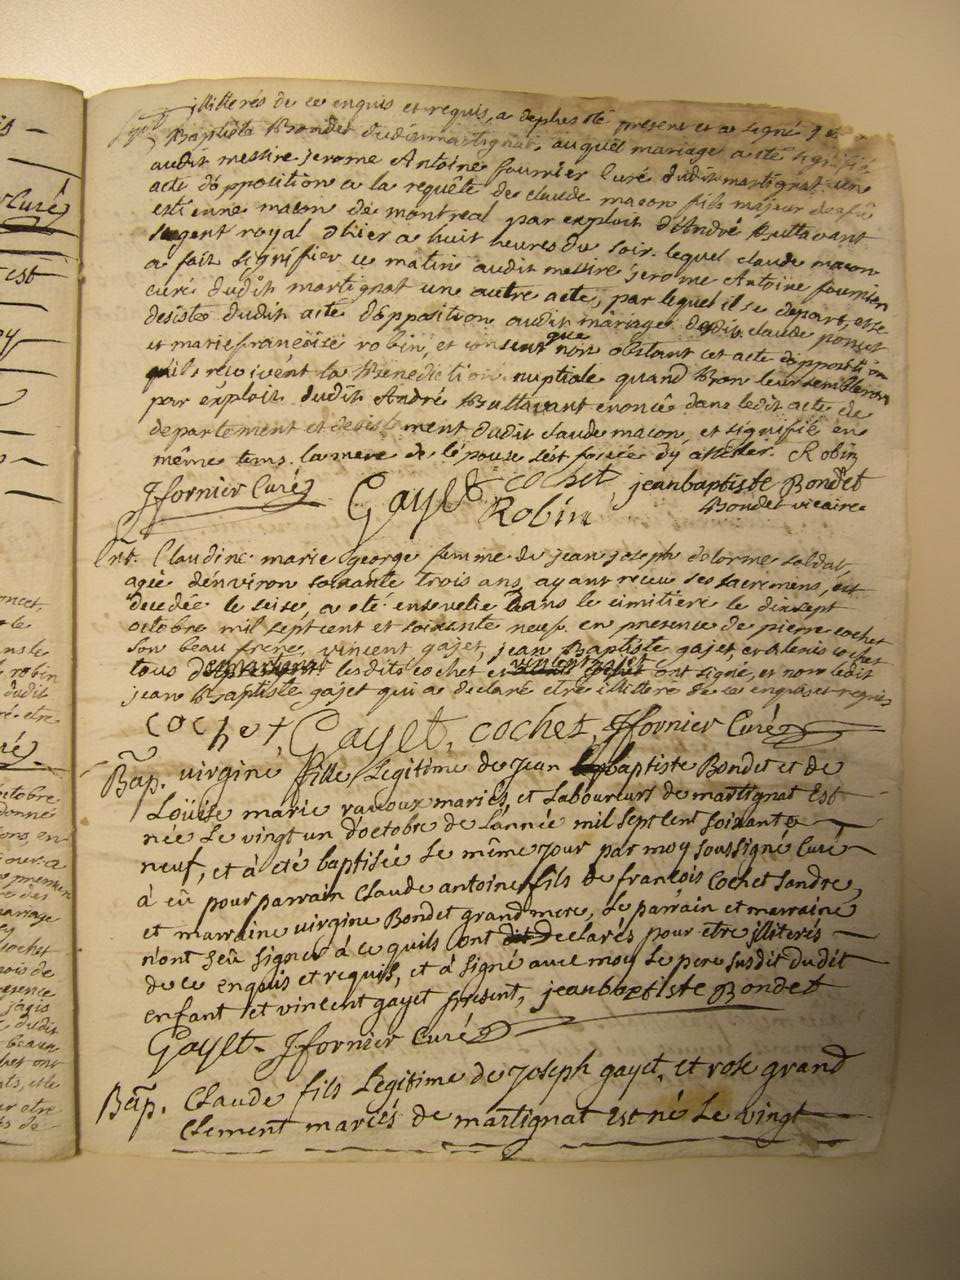 illitterés de ce enquis et requis, a deplus été présent et a signé
Baptiste Bondet dudit martignat, auquel mariage a été signifié
audit messire jerome Antoine fournier Curé dudit martignat, un
acte d'opposition a la requête de claude macon fils majeur de feu
estienne macon de montreal par exploit d'André Bullavant
sergent royal d'hier a huit heures du soir. lequel claude macon
a fait signifier ce matin audit messire jerome Antoine fournier
curé dudit martignat une autre acte, par lequel il se depart, et se
desiste dudit acte d'opposition audit mariage dudit claude poncet
et marie françoise robin, et consent que non obstant cet acte d'opposition
qu'ils reçoivent la Benediction nuptiale quand Bon leur semblera
par exploit dudit André Bullavant enoncé dans ledit acte de
departement et desistement dudit claude macon, et signifié en
même tems. la mere de l'épouse s'est forcée d'y assister. Robin
Jfornier Curé Gayet cochet jeanbaptiste Bondet
Robin Bondet vicaire
Ent. Claudine marie george femme de jean joseph delorme soldat
agée d'environ soixante trois ans, ayant receu ses sacremens, est
decedée le seise, a eté ensevelie dans le cimitiere le dix sept
octobre mil sept cent et soixante neuf. en presence de pierre cochet
son beau frere, vincent gajet, jean Baptiste gajet et denis cochet
tous de martignat lesdits cochet et vincent gajet ont signé, et non ledit
jean Baptiste gajet qui a declaré etre illitere de ce enquis et requis
cochet, Gayet, cochet, Jfornier Curé
Bap. virgine fille Legitime de Jean baptiste Bondet et de
Loüise marie ravoux mariés, et Laboureurs de martignat Est
née Le vingt un d'octobre de L'année mil sept Cent soixante
neuf, et à été baptisée Le même jour par moy soussigné Curé
à eû pour parrain Claude antoine fils de françois Cochet Landre,
et marraine virgine Bondet grand mere, Le parrain et marraine
n'ont sçû signer à ce quils ont dit Declarés pour etre illiterés
de ce enquis et requis, et à signé avec moy Le pere susdit dudit
enfant et vincent gayet present, jeanbaptiste Bondet
Gayet. Jfornier Curé
Bap. Claude fils Legitime de Joseph gayet, et rose grand
Clement mariés de martignat Est né Le vingt